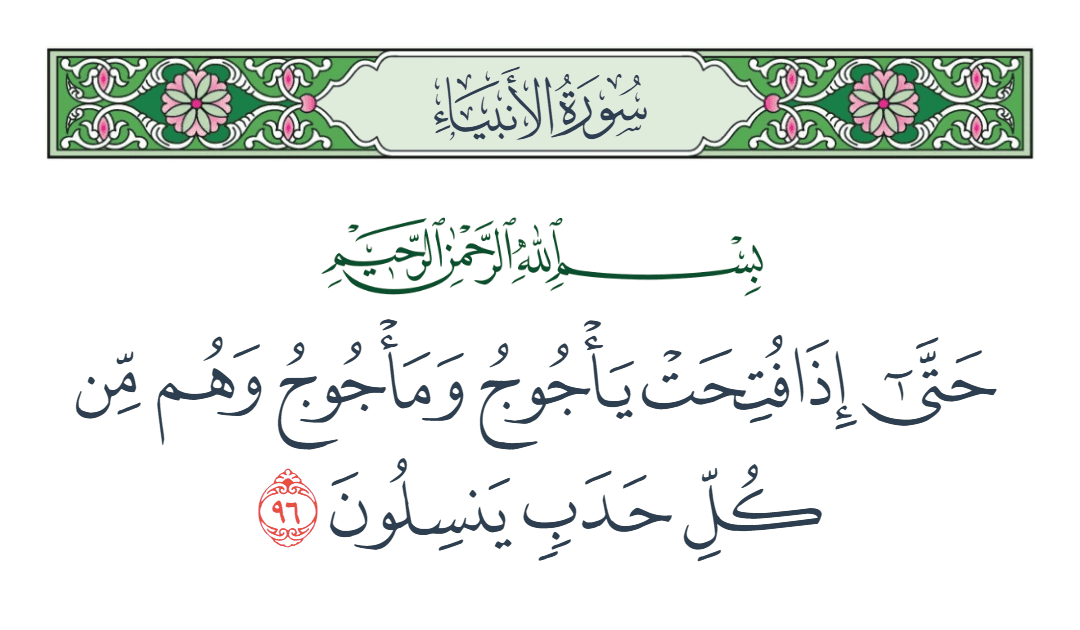 سُورَةُ الأَنبِيَاءِ
بِسْمِ ٱللَّهِ ٱلرَّحْمَٰنِ ٱلرَّحِيمِ
حَتَّىٰٓ إِذَا فُتِحَتْ يَأْجُوجُ وَمَأْجُوجُ وَهُم مِّن
كُلِّ حَدَبٍ يَنسِلُونَ ٩٦